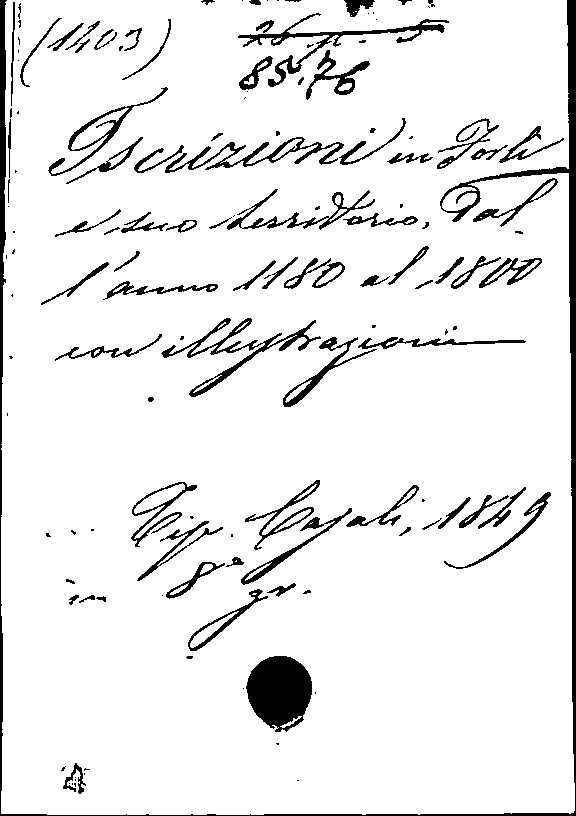 (1403)
26 p. 5
85.76
Iscrizioni in Forlì
e suo territorio, dal
l'anno 1180 al 1800
con illustrazioni
Tip. Casali, 1849
in 8° gr.